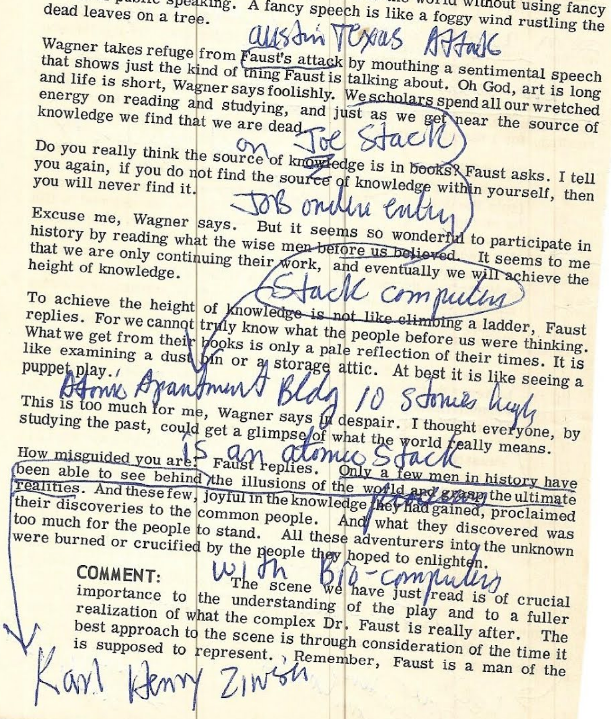 public speaking. A fancy speech is like a foggy wind rustling the
dead leaves on a tree.
Austin Texas Attack
Wagner takes refuge from Faust's attack by mouthing a sentimental speech
that shows just the kind of thing Faust is talking about. Oh God, art is long
and life is short, Wagner says foolishly. We scholars spend all our wretched
energy on reading and studying, and just as we get near the source of
knowledge we find that we are dead.
on Joe Stack
Do you really think the source of knowledge is in books? Faust asks. I tell
you again, if you do not find the source of knowledge within yourself, then
you will never find it.
JOB online entry
Excuse me, Wagner says. But it seems so wonderful to participate in
history by reading what the wise men before us believed. It seems to me
that we are only continuing their work, and eventually we will achieve the
height of knowledge.
Stack computers
To achieve the height of knowledge is not like climbing a ladder, Faust
replies. For we cannot truly know what the people before us were thinking.
What we get from their books is only a pale reflection of their times. It is
like examining a dust bin or a storage attic. At best it is like seeing a
puppet play.
Atomic Apartment Bldg 10 Stories high
This is too much for me, Wagner says in despair. I thought everyone, by
studying the past, could get a glimpse of what the world really means.
is an atomic Stack
How misguided you are! Faust replies. Only a few men in history have
been able to see behind the illusions of the world and grasp the ultimate
realities. And these few, joyful in the knowledge they had gained, proclaimed
their discoveries to the common people. And what they discovered was
too much for the people to stand. All these adventurers into the unknown
were burned or crucified by the people they hoped to enlighten.
with Bio-computers
COMMENT: The scene we have just read is of crucial
importance to the understanding of the play and to a fuller
realization of what the complex Dr. Faust is really after. The
best approach to the scene is through consideration of the time it
is supposed to represent. Remember, Faust is a man of the
Karl Henry